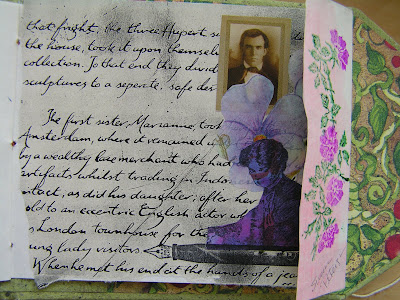 that fright, the three Hupert su da
the house, took it upon themselve
collection. To that end they divid
sculptures to a seperate, safe des
The first sister, Marianne, took
Amsterdam, where it remained u
by a wealthy lace merchant who had
artifacts whilst trading in Indoc
ntact, as did his daughter; after her
old to an eccentric English actor wh
s London townhouse for the
ung lady visitors.
When he met his end at the hands of a jea